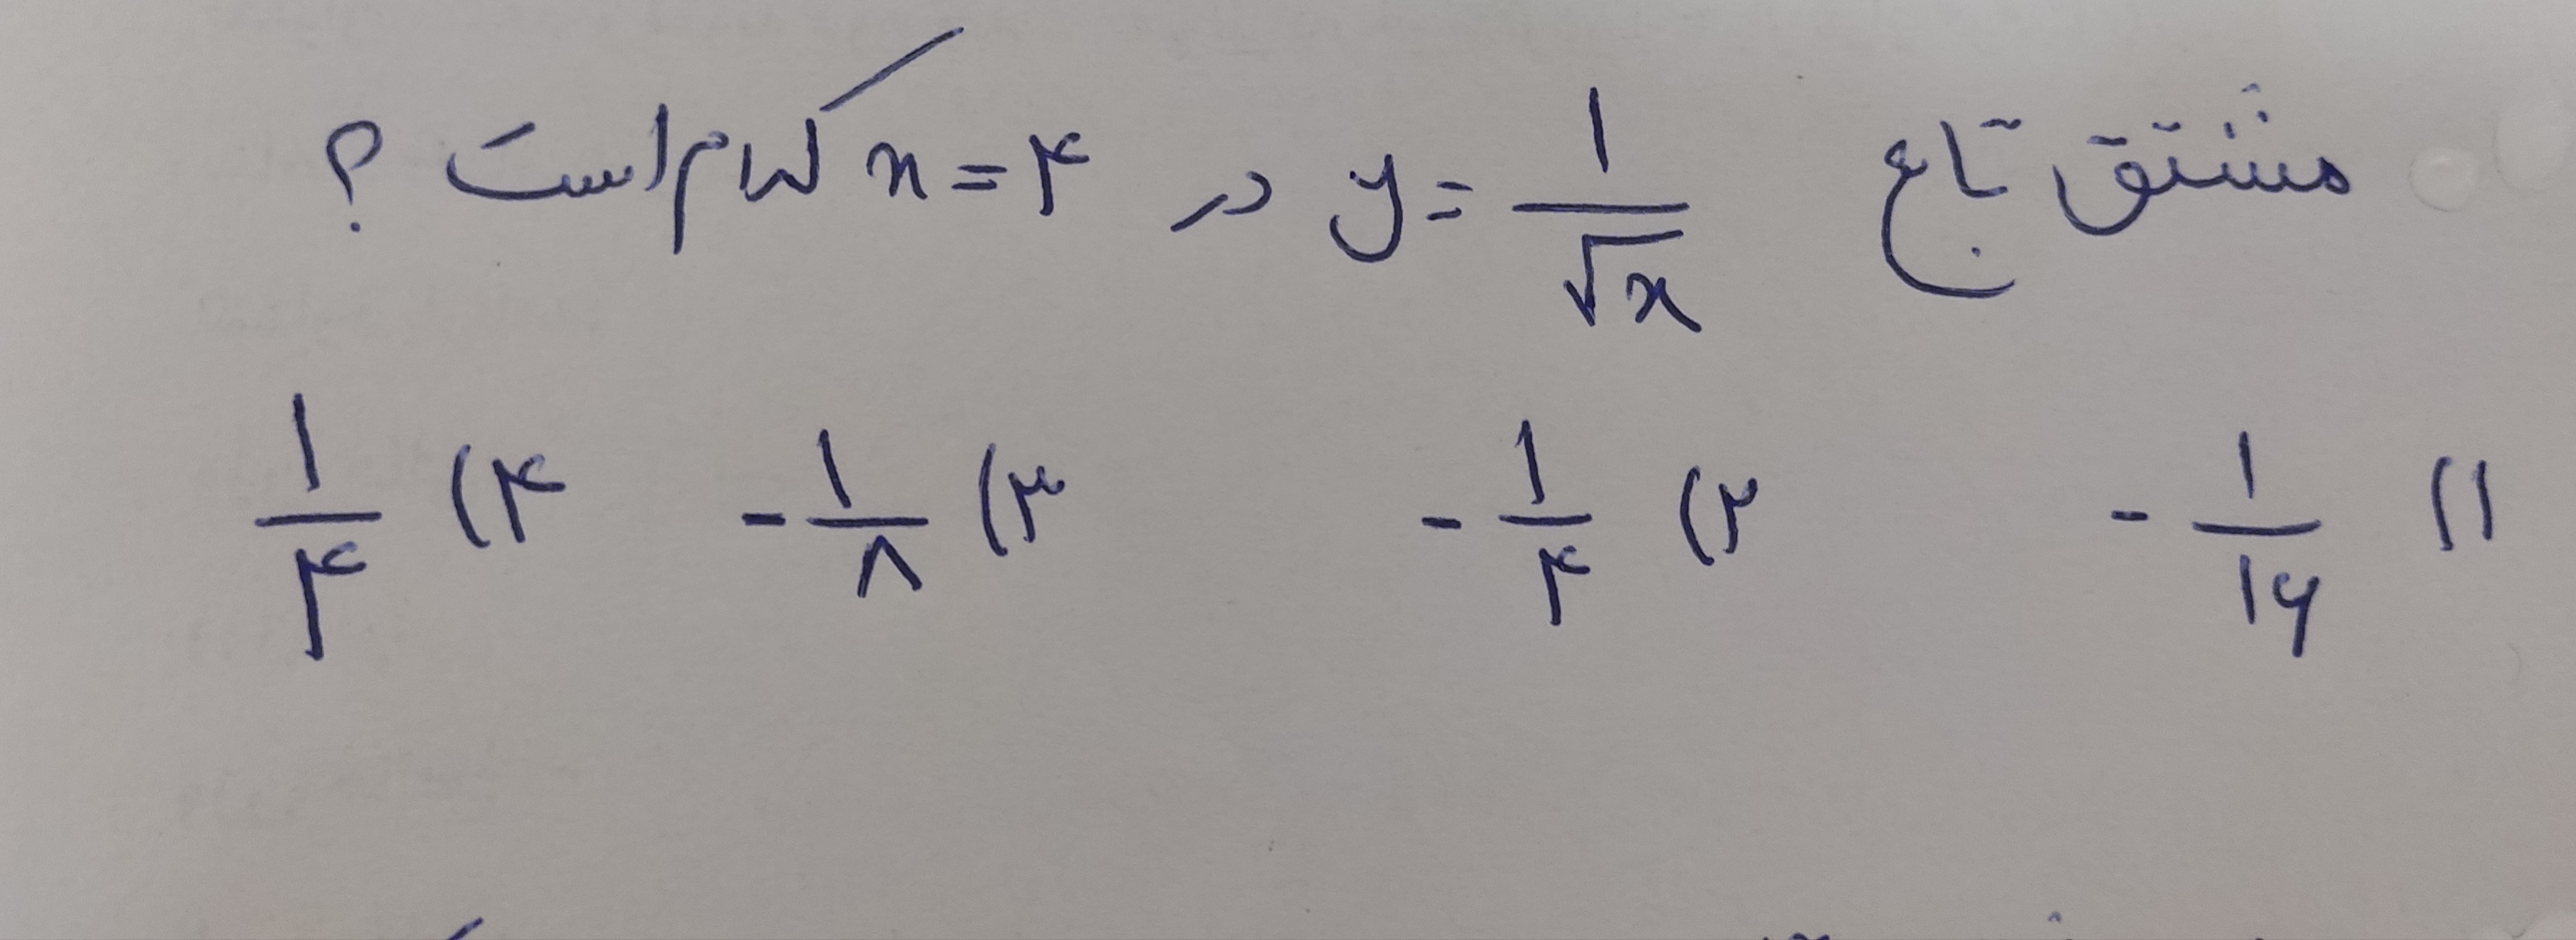 مشتق تابع y = 1/√x در x = ۴ کدام است ؟
۱) -۱/۱۶ ۲) -۱/۴ ۳) -۱/۸ ۴) ۱/۴